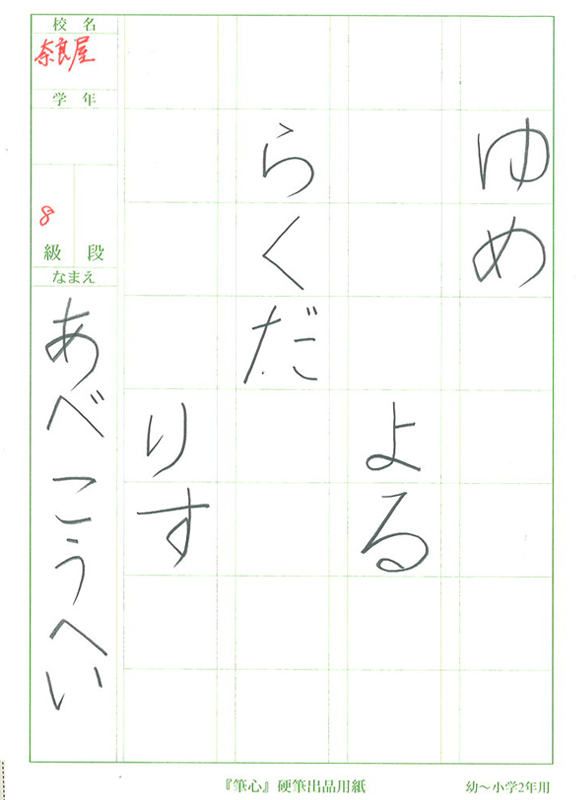 ゆめ
よる
らくだ
りす
校名
奈良屋
学年
8
級 段
なまえ
あべ こうへい
『筆心』硬筆出品用紙
幼〜小学2年用